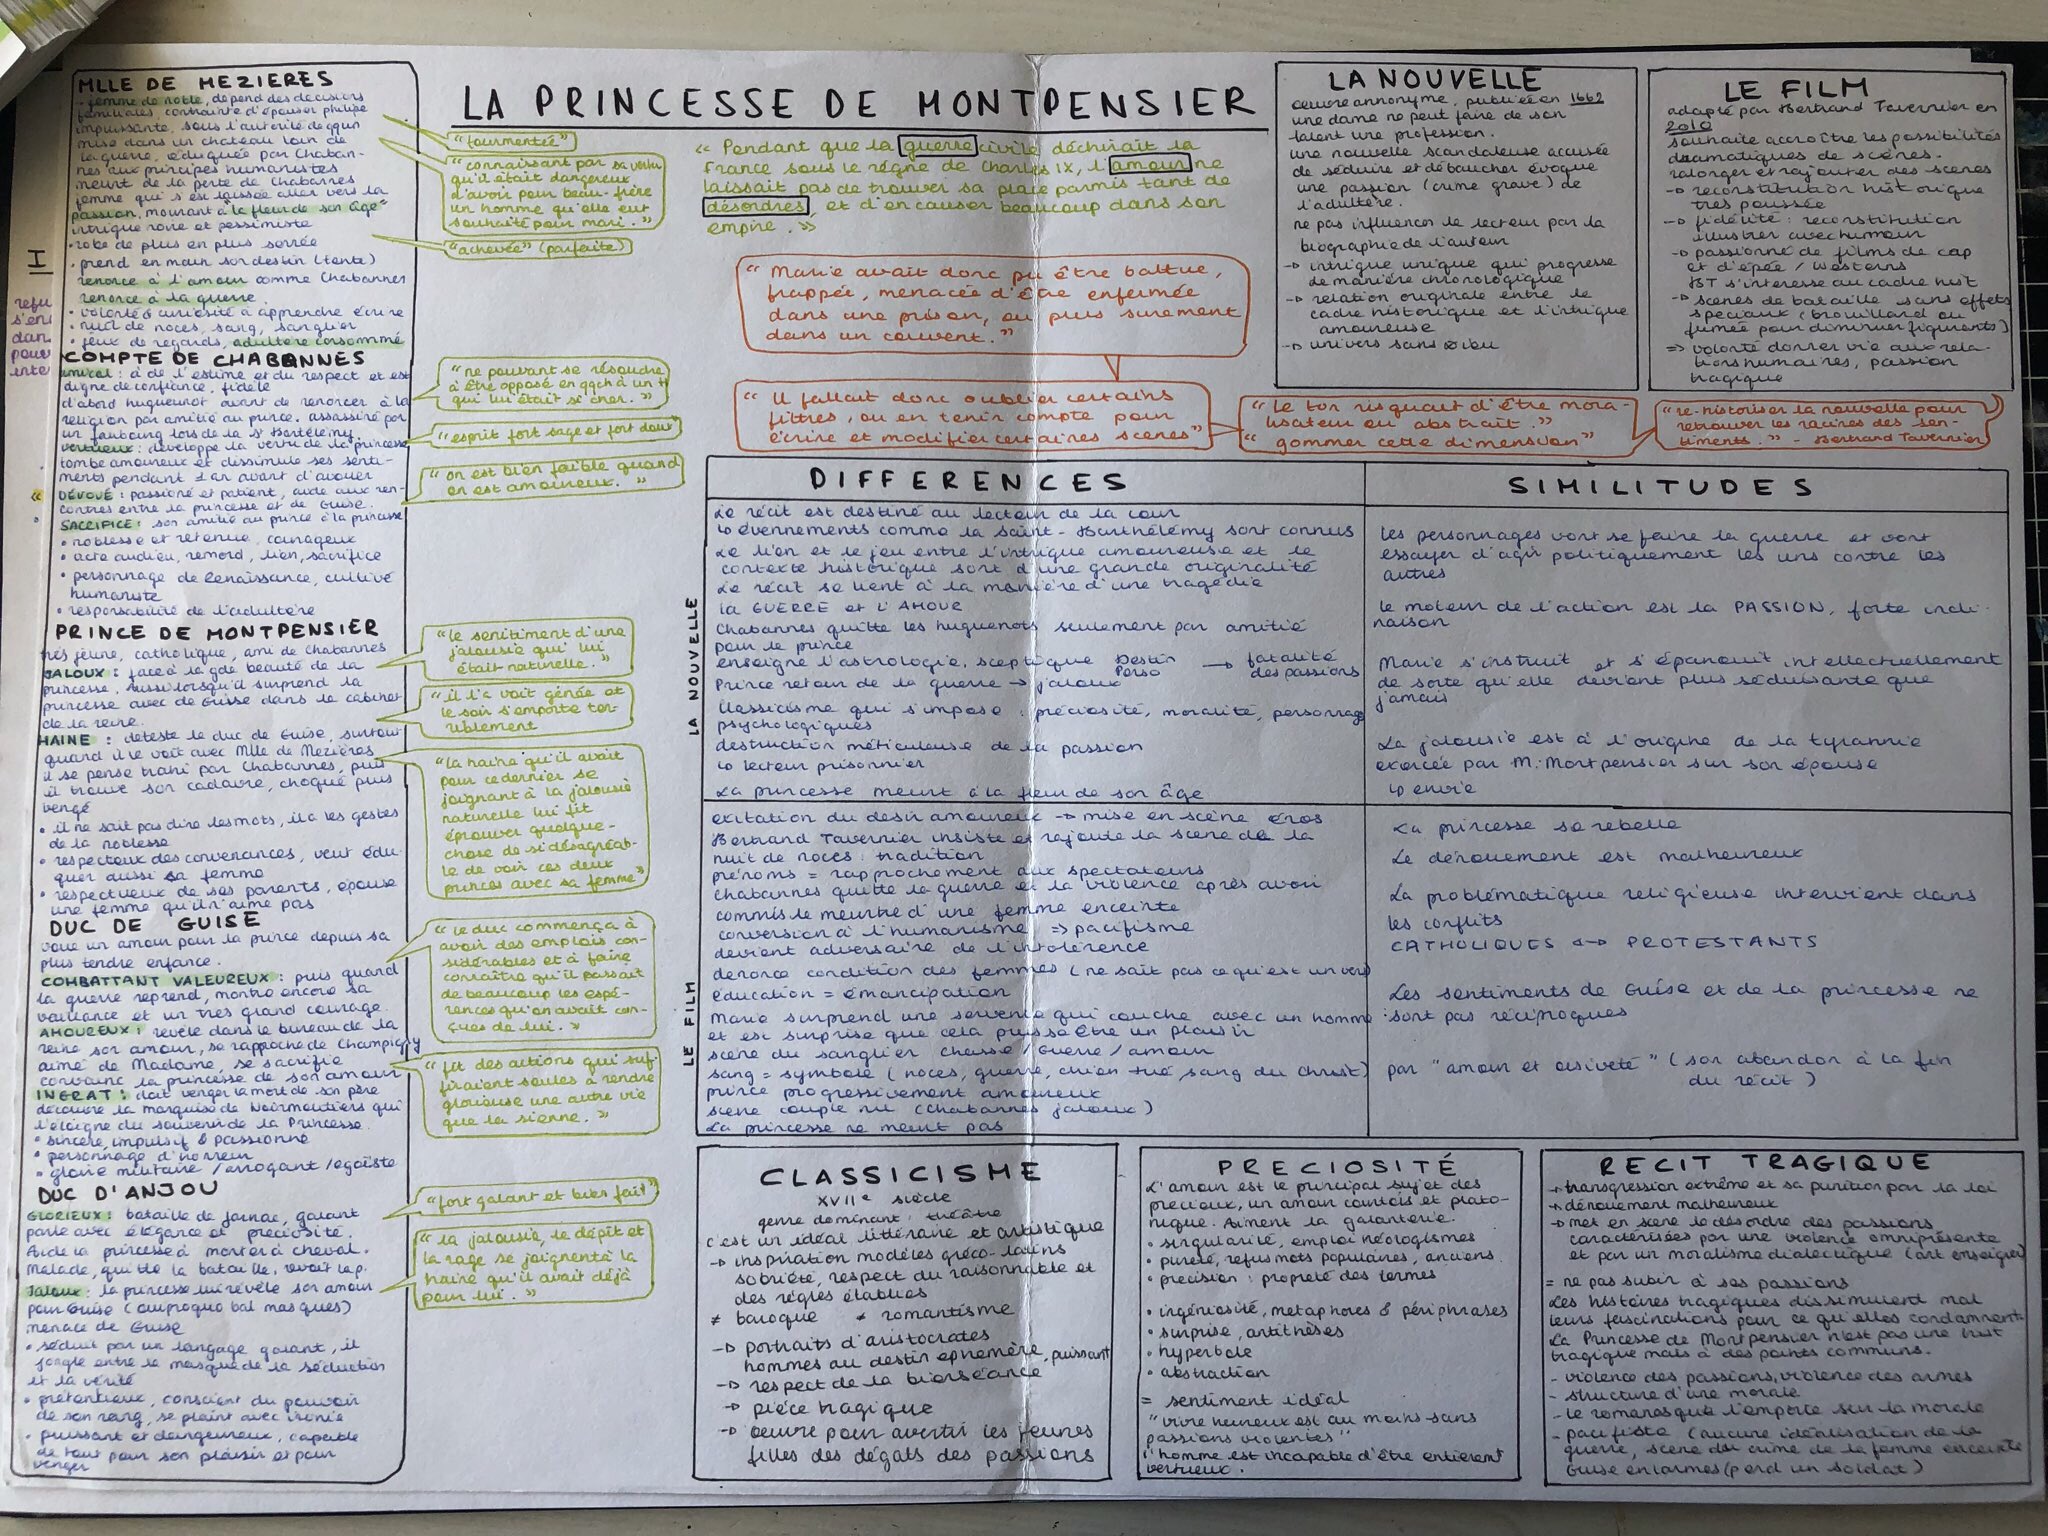 LA PRINCESSE DE MONTPENSIER
MLLE DE MEZIERES
- femme de noble, dépend des décisions
familiales, contrainte d'épouser philipe
impuissante, sous l'autorité de qqun
mise dans un chateau loin de
la guerre, éduquée par Chaban-
nes aux principes humanistes
meurt de la perte de Chabannes
femme qui s'est laissée aller vers la
passion, mourant à "la fleur de son âge"
intrigue noire et pessimiste
• robe de plus en plus serrée
• prend en main son destin (tente)
renonce à l'amour comme Chabannes
renonce à la guerre.
• volonté & curiosité à apprendre écrire
• nuit de noces, sang, sanglier
• jeux de regards, adultère consommé
"tourmentée"
"connaissant par sa vertu
qu'il était dangereux
d'avoir pour beau-frère
un homme qu'elle eut
souhaité pour mari."
"achevée" (parfaite)
COMPTE DE CHABANNES
amical : a de l'estime et du respect et est
digne de confiance, fidèle
d'abord huguenot avant de renoncer à la
religion par amitié au prince. assassiné par
un faubourg lors de la St Bartélémy
vertueux : développe la vertu de la princesse
tombe amoureux et dissimule ses senti-
ments pendant 1 an avant d'avouer
DÉVOUÉ : passionné et patient, aide aux ren-
contres entre la princesse et de Guise.
SACRIFICE : son amitié au prince à la princesse
• noblesse et retenue, courageux
• acte audieu, remord, lien, sacrifice
• personnage de Renaissance, cultivé
humaniste
• responsabilité de l'adultère
"ne pouvant se résoudre
à être opposé en qqch à un H
qui lui était si cher."
"esprit fort sage et fort doux"
"on est bien faible quand
on est amoureux."
PRINCE DE MONTPENSIER
très jeune, catholique, ami de Chabannes
JALOUX : face à la gde beauté de la
princesse. Aussi lorsqu'il surprend la
princesse avec de Guise dans le cabinet
de la reine.
HAINE : déteste le duc de Guise, surtout
quand il le voit avec Mlle de Mezières
il se pense trahi par Chabannes, puis
il trouve son cadavre, choqué puis
vengé
• il ne sait pas dire les mots, il a les gestes
de la noblesse
• respectueux des convenances, veut édu-
quer aussi sa femme
• respectueux de ses parents, épouse
une femme qu'il n'aime pas
"le sentiment d'une
jalousie qui lui
était naturelle."
"il la voit gênée et
le soir s'emporte ter-
riblement
"la haine qu'il avait
pour ce dernier se
joignant à la jalousie
naturelle lui fit
éprouver quelque-
chose de si désagréab-
le de voir ces deux
princes avec sa femme"
DUC DE GUISE
voue un amour pour la prince depuis sa
plus tendre enfance.
COMBATTANT VALEUREUX : puis quand
la guerre reprend, montre encore sa
vaillance et un très grand courage.
AMOUREUX : révèle dans le bureau de la
reine son amour, se rapproche de Champigny
aimé de Madame, se sacrifie
convainc la princesse de son amour
INGRAT : doit venger la mort de son père
découvre la marquise de Noirmoutiers qui
l'éloigne du souvenir de la Princesse.
• sincère, impulsif & passionné
• personnage d'honneur
• gloire militaire / arrogant / egoïste
"le duc commença à
avoir des emplois con-
sidérables et à faire
connaître qu'il passait
de beaucoup les espé-
rances qu'on avait con-
çues de lui."
"fit des actions qui suf-
firaient seules à rendre
glorieuse une autre vie
que la sienne."
DUC D'ANJOU
GLORIEUX : bataille de Jarnac, galant
parle avec élégance et préciosité.
Aide la princesse à monter à cheval.
Malade, quitte la bataille,
Jaloux : la princesse lui révèle son amour
pour Guise (quiproquo bal masqués)
menace de Guise
• séduit par un langage galant, il
jongle entre le masque de la séduction
et la vérité
• prétentieux, conscient du pouvoir
de son rang, se plaint avec ironie
• puissant et dangeureux, capable
de tout pour son plaisir et pour
venger
"fort galant et bien fait"
"la jalousie, le dépit et
la rage se joignent à la
haine qu'il avait déjà
pour lui."
"Pendant que la guerre civile déchirait la
France sous le règne de Charles IX, l'amour ne
laissait pas de trouver sa place parmis tant de
désordres, et d'en causer beaucoup dans son
empire."
"Marie avait donc pu être battue,
frappée, menacée d'être enfermée
dans une prison, ou plus surement
dans un couvent."
"Il fallait donc oublier certains
filtres, ou en tenir compte pour
écrire et modifier certaines scènes"
"Le ton risquait d'être mora-
lisateur ou abstrait."
"gommer cette dimension"
"re-historiser la nouvelle pour
retrouver les racines des sen-
timents." - Bertrand Tavernier
LA NOUVELLE
œuvre annonyme, publiée en 1662
une dame ne peut faire de son
talent une profession.
une nouvelle scandaleuse accusée
de séduire et débaucher évoque
une passion (crime grave) de
l'adultère.
ne pas influencer le lecteur par la
biographie de l'auteur
→ intrigue unique qui progresse
de manière chronologique
→ relation originale entre le
cadre historique et l'intrigue
amoureuse
→ univers sans dieu
LE FILM
adapté par Bertrand Tavernier en
2010
souhaite accroître les possibilités
dramatiques de scènes.
ralonger et rajouter des scènes
→ reconstitution historique
très poussée
→ fidélité : reconstitution
illustrer avec humour
→ passionné de films de cap
et d'épée / Westerns
BT s'interesse au cadre hist
→ scènes de bataille sans effets
speciaux (brouillard ou
fumée pour diminuer figurants)
⇒ volonté donner vie aux rela-
tions humaines, passion
tragique
DIFFERENCES
SIMILITUDES
LA NOUVELLE
Le récit est destiné au lecteur de la cour
↳ évennements comme la Saint-Barthélémy sont connus
Le lien et le jeu entre l'intrigue amoureuse et le
contexte historique sont d'une grande originalité
Le récit se tient à la manière d'une tragédie
la GUERRE et L'AMOUR
Chabannes quitte les huguenots seulement par amitié
pour le prince
enseigne l'astrologie, sceptique Destin Perso → fatalité des passions
Prince retour de la guerre → jaloux
Classicisme qui s'impose : préciosité, moralité, personnage
psychologiques
destruction méticuleuse de la passion
↳ lecteur prisonnier
La princesse meurt à la fleur de son âge
Les personnages vont se faire la guerre et vont
essayer d'agir politiquement les uns contre les
autres
Le moteur de l'action est la PASSION, forte incli-
naison
Marie s'instruit et s'épanouit intellectuellement
de sorte qu'elle devient plus séduisante que
jamais
La jalousie est à l'origine de la tyrannie
exercée par M. Montpensier sur son épouse
↳ envie
LE FILM
exitation du désir amoureux → mise en scène éros
Bertrand Tavernier insiste et rajoute la scène de la
nuit de noces : tradition
prénoms = rapprochement aux spectateurs
Chabannes quitte la guerre et la violence après avoir
commis le meurtre d'une femme enceinte
conversion à l'humanisme ⇒ pacifisme
devient adversaire de l'intolérence
dénonce condition des femmes (ne sait pas ce qu'est un vers)
éducation = émancipation
Marie surprend une servente qui couche avec un homme
et est surprise que cela puisse être un plaisir
scène du sanglier chasse / guerre / amour
sang = symbole (noces, guerre, chien tué, sang du Christ)
prince progressivement amoureux
scène couple nu (Chabannes jaloux)
La princesse ne meurt pas
La princesse se rebelle
Le dénouement est malheureux
La problématique religieuse intervient dans
les conflits
CATHOLIQUES ↔ PROTESTANTS
Les sentiments de Guise et de la princesse ne
sont pas réciproques
par "amour et oisiveté" (son abandon à la fin
du récit)
CLASSICISME
XVIIe siècle
genre dominant : théâtre
c'est un idéal littéraire et artistique
→ inspiration modèles gréco-latins
sobriété, respect du raisonnable et
des règles établies
≠ baroque ≠ romantisme
→ portraits d'aristocrates
hommes au destin éphemère, puissant
→ respect de la bienséance
→ pièce tragique
→ œuvre pour avertir les jeunes
filles des dégats des passions
PRECIOSITÉ
L'amour est le principal sujet des
précieux, un amour courtois et plato-
nique. Aiment la galanterie.
• singularité, emploi néologismes
• pureté, refus mots populaires, anciens.
• précision : propreté des termes
• ingéniosité, metaphores & périphrases
• surprise, antithèses
• hyperbole
• abstraction
= sentiment idéal
"vivre heureux est au moins sans
passions violentes"
"l'homme est incapable d'être entièremt
vertueux.
RECIT TRAGIQUE
→ transgression extrême et sa punition par la loi
→ dénouement malheureux
→ met en scène le désordre des passions
caractérisées par une violence omniprésente
et par un moralisme dialectique (art enseigner)
= ne pas subir à ses passions
Les histoires tragiques dissimulent mal
leurs fascinations pour ce qu'elles condamnent
La Princesse de Montpensier n'est pas une hist
tragique mais a des points communs.
- violence des passions, violence des armes
- structure d'une morale
- le romanesque l'emporte sur la morale
- pacifiste (aucune idéalisation de la
guerre, scène du crime de la femme enceinte
Guise en larmes (perd un soldat)